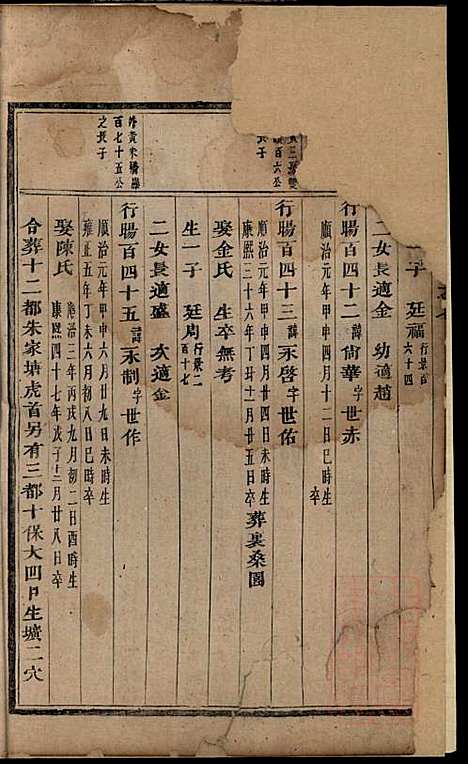 子 廷福 行景百六十四
二女長適金 幼適趙
行暘百四十二 諱尙華 字世赤
順治元年甲申四月十二日巳時生 卒
行暘百四十三 諱永啓 字世佑
順治元年甲申四月廿四日未時生
康熙三十六年丁丑十二月廿五日卒 葬裏桑園
娶金氏 生卒無考
生一子 廷周 行景二百十七
二女長適盛 次適金
行暘百四十五 諱永制 字世作
順治元年甲申六月廿九日未時生
雍正五年丁未六月初二日巳時卒
娶陳氏 順治三年丙戌九月初二日酉時生
康熙四十七年戊子十二月廿八日卒
合葬十二都朱家塘虎首另有三都十保大四戶生壙二穴
百六公
長子
外黃朱橋
百七十五公
之長子